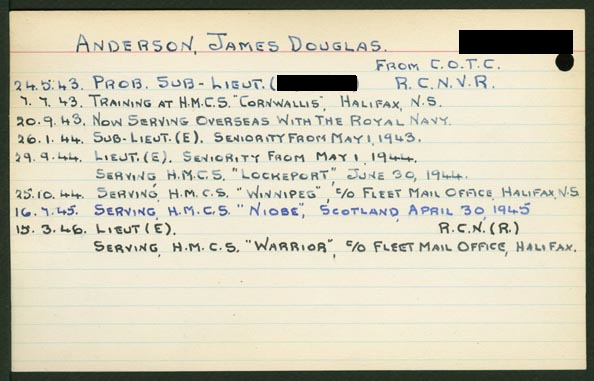 ANDERSON, JAMES DOUGLAS.
FROM C.O.T.C.
24.5.43. PROB. SUB-LIEUT. ( R.C.N.V.R.
7.7.43. TRAINING AT H.M.C.S. "CORNWALLIS", HALIFAX, N.S.
20.9.43. NOW SERVING OVERSEAS WITH THE ROYAL NAVY.
26.1.44. SUB-LIEUT. (E). SENIORITY FROM MAY 1, 1943.
29.9.44. LIEUT. (E). SENIORITY FROM MAY 1, 1944.
SERVING H.M.C.S. "LOCKEPORT", JUNE 30, 1944.
25.10.44. SERVING, H.M.C.S. "WINNIPEG", c/o FLEET MAIL OFFICE, HALIFAX, N.S.
16.7.45. SERVING, H.M.C.S. "NIOBE", SCOTLAND, APRIL 30, 1945
15.3.46. LIEUT (E). R.C.N.(R.)
SERVING, H.M.C.S. "WARRIOR", c/o FLEET MAIL OFFICE, HALIFAX.